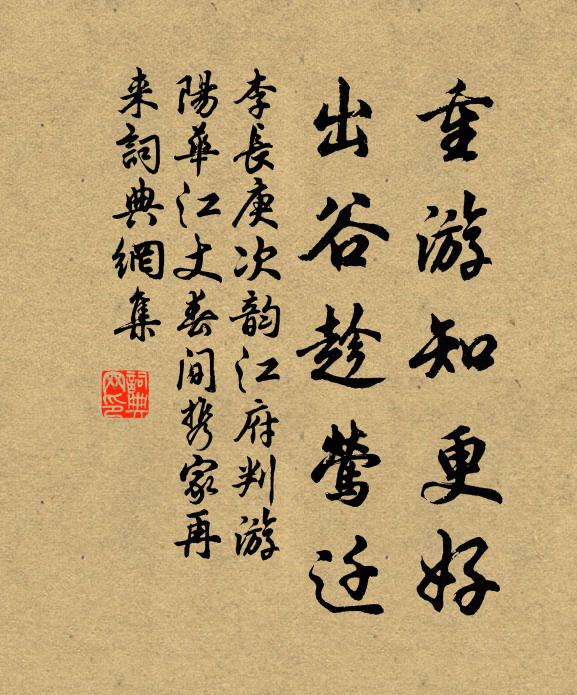 重游知更好
出谷趁莺迁
李長庚次韵江府判游
陽華江丈春间携家再
来詞典網集
詞典
网印